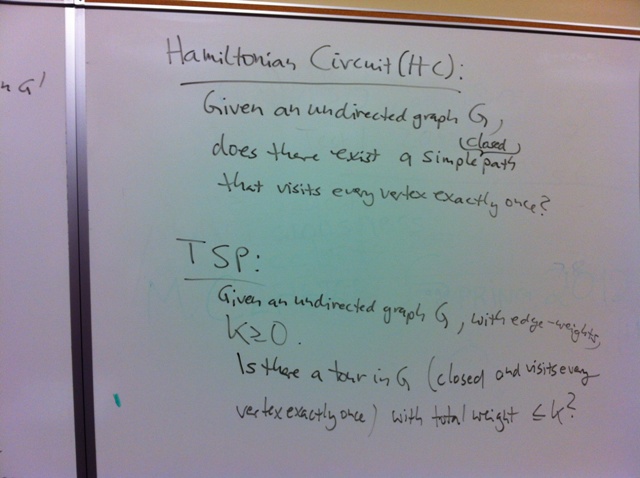 n G'
Hamiltonian Circuit (HC):
Given an undirected graph G,
(closed)
does there exist a simple path
that visits every vertex exactly once?
TSP:
Given an undirected graph G, with edge-weights,
k≥0.
Is there a tour in G (closed and visits every
vertex exactly once) with total weight ≤ k?